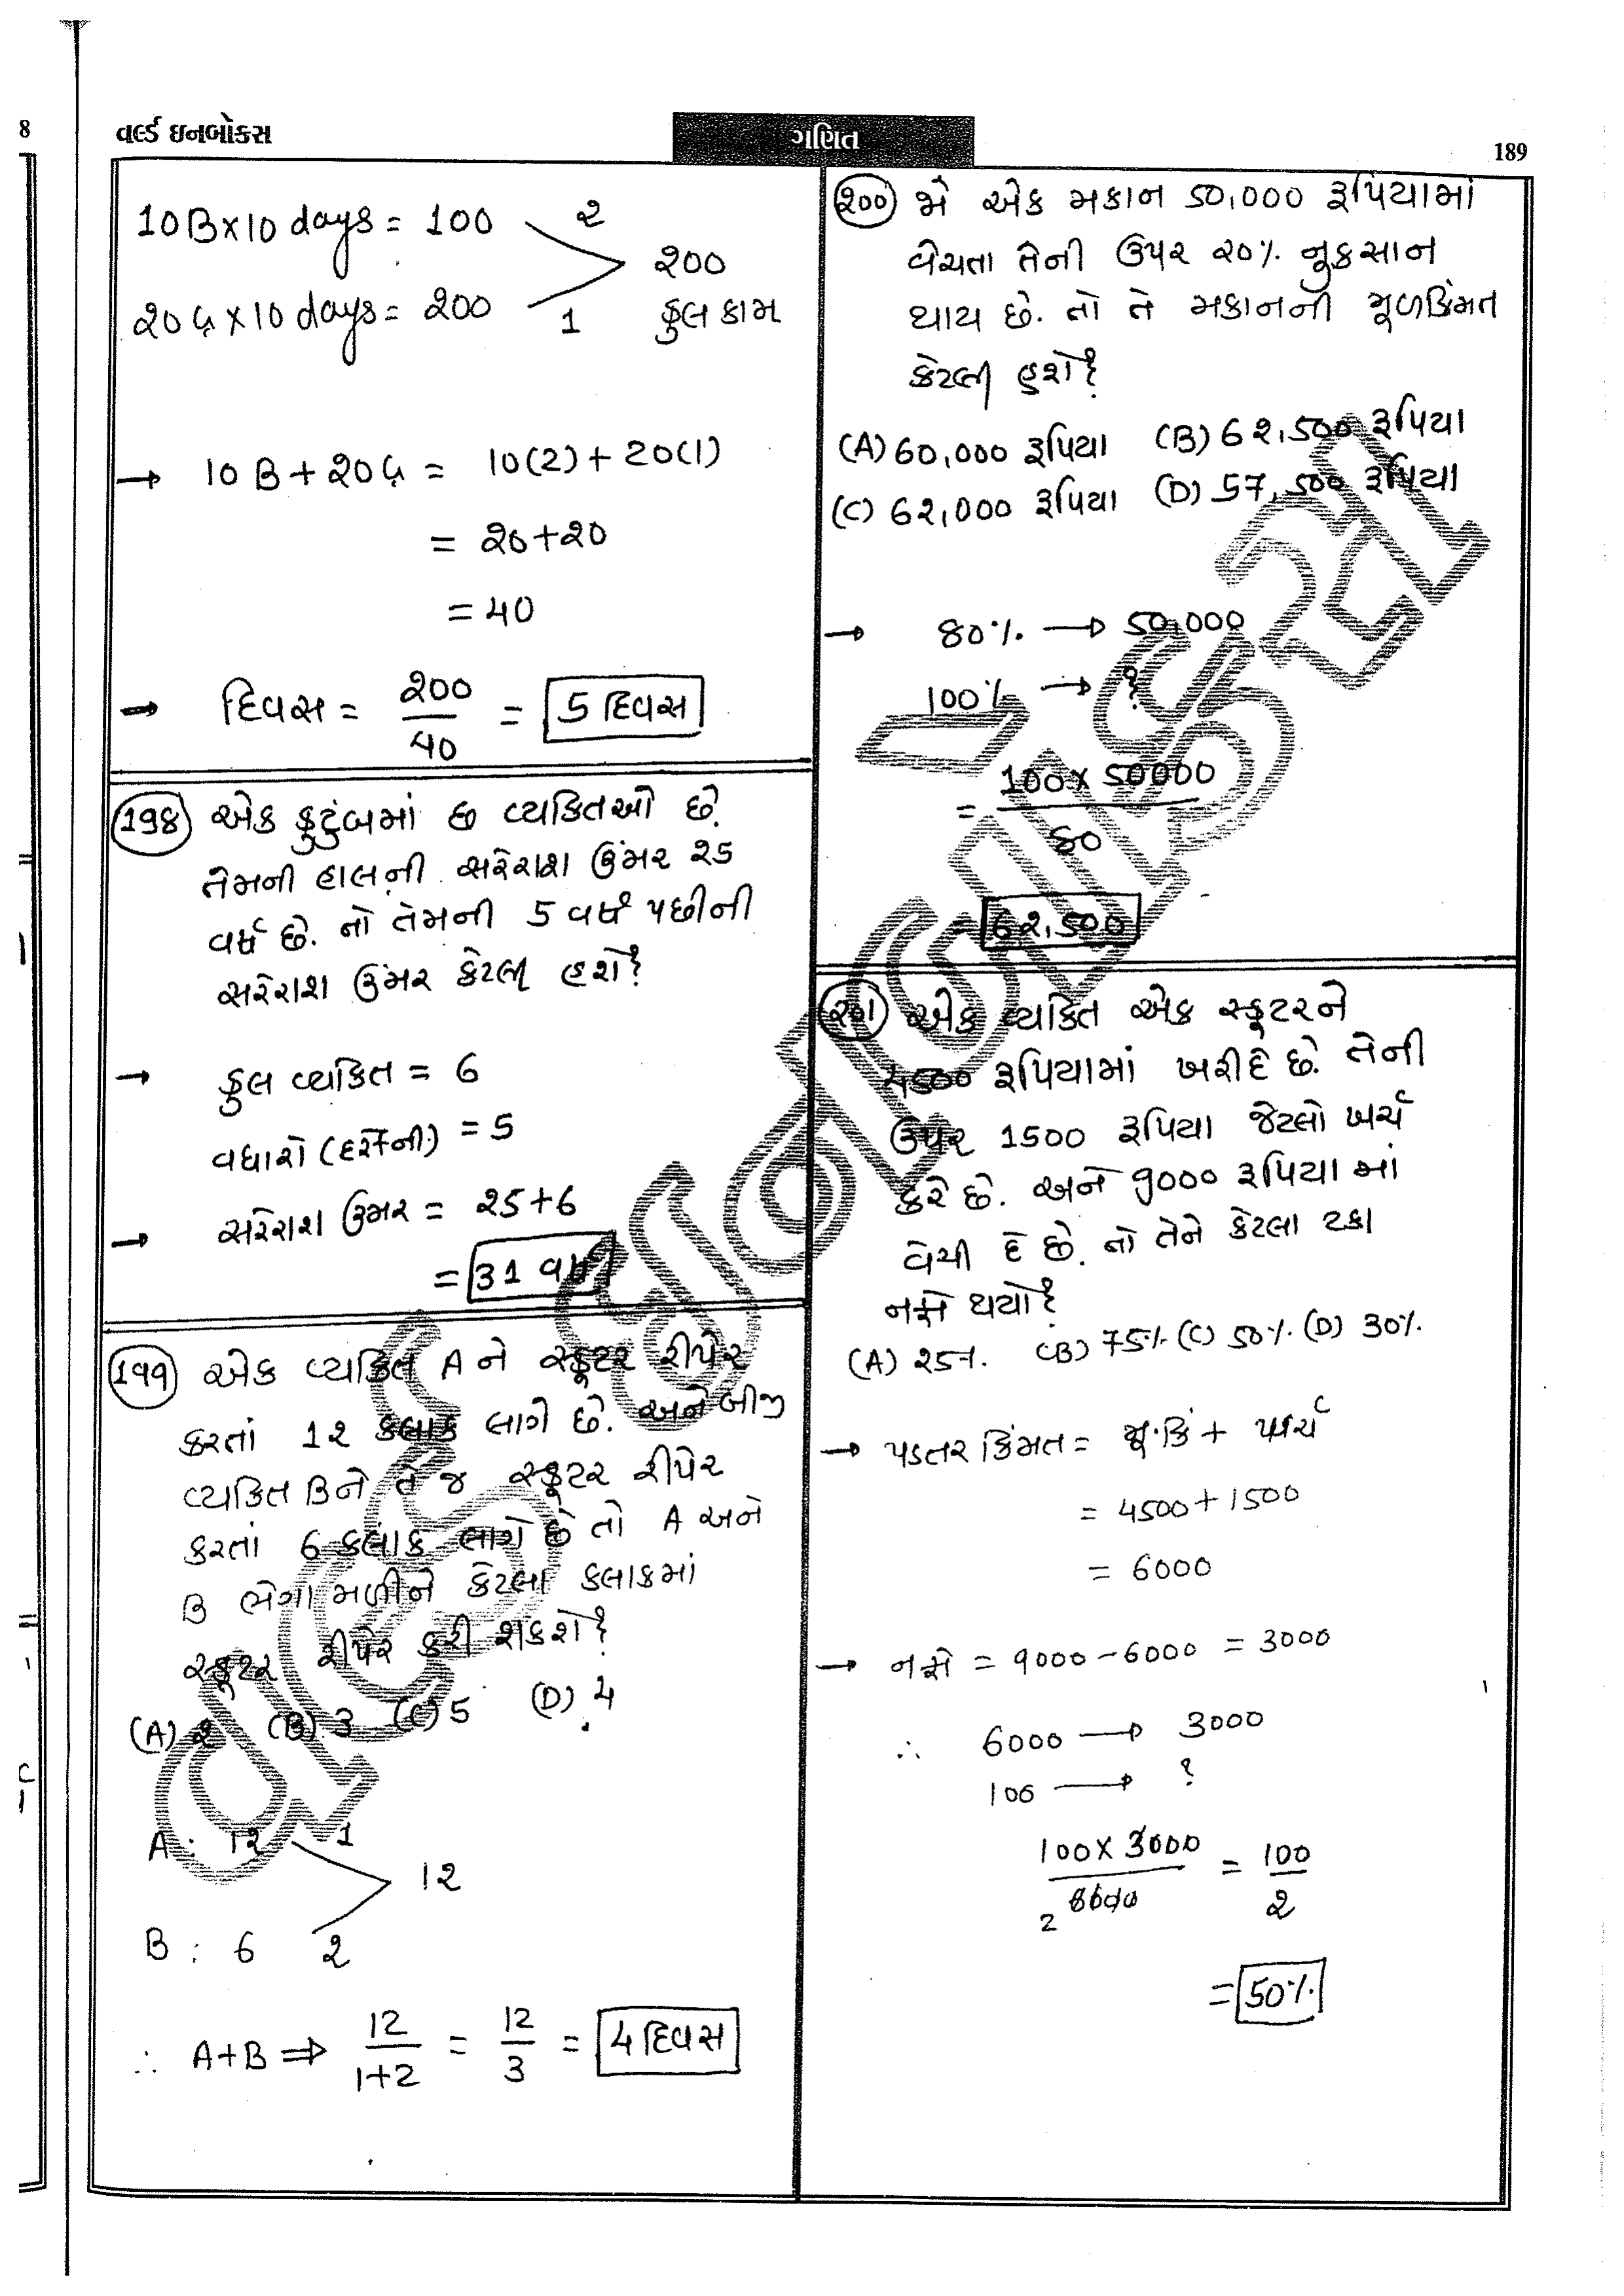 8
વર્લ્ડ ઇનબોક્સ
ગણિત
189
10B×10 days = 100
2
200
કુલ કામ
20G×10 days = 200
1
→ 10B + 20G = 10(2) + 20(1)
= 20+20
= 40
→ દિવસ = 200/40 = 5 દિવસ
198 એક કુટુંબમાં છ વ્યકિતઓ છે.
તેમની હાલની સરેરાશ ઉંમર 25
વર્ષ છે. તો તેમની 5 વર્ષ પછીની
સરેરાશ ઉંમર કેટલી હશે?
→ કુલ વ્યકિત = 6
વધારો (દરેકની) = 5
→ સરેરાશ ઉમર = 25+6
= 31 વર્ષ
199 એક વ્યકિત A ને સ્કૂટર રીપેર
કરતાં 12 કલાક લાગે છે. અને બીજી
વ્યકિત B ને તે જ સ્કૂટર રીપેર
કરતાં 6 કલાક લાગે છે તો A અને
B ભેગા મળીને કેટલા કલાકમાં
સ્કૂટર રીપેર કરી શકશે?
(A) 2 (B) 3 (C) 5 (D) 4
A : 12 1
12
B : 6 2
∴ A+B ⇒ 12/1+2 = 12/3 = 4 દિવસ
200 જો એક મકાન 50,000 રૂપિયામાં
વેચતા તેની ઉપર 20% નુકસાન
થાય છે. તો તે મકાનની મૂળકિંમત
કેટલી હશે?
(A) 60,000 રૂપિયા (B) 62,500 રૂપિયા
(C) 62,000 રૂપિયા (D) 57,500 રૂપિયા
→ 80% → 50,000
100% → ?
= 100 × 50000/80
62,500
201 એક વ્યકિત એક સ્કૂટરને
4500 રૂપિયામાં ખરીદે છે. તેની
ઉપર 1500 રૂપિયા જેટલો ખર્ચ
કરે છે. અને 9000 રૂપિયા માં
વેચી દે છે. તો તેને કેટલા ટકા
નફો થયો?
(A) 25%. (B) 75% (C) 50%. (D) 30%.
→ પડતર કિંમત = મૂ.કિં + ખર્ચ
= 4500 + 1500
= 6000
→ નફો = 9000 - 6000 = 3000
∴ 6000 → 3000
100 → ?
100 × 3000/6000 = 100/2
2
= 50%